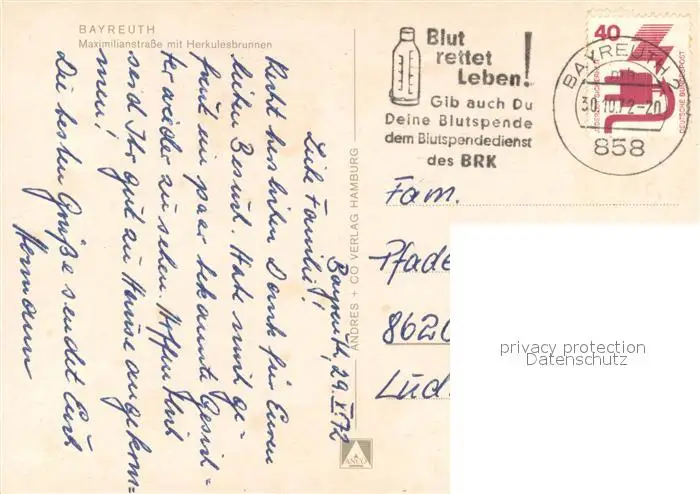 BAYREUTH
Maximilianstraße mit Herkulesbrunnen
Blut
rettet
Leben!
Gib auch Du
Deine Blutspende
dem Blutspendedienst
des BRK
40
DEUTSCHE BUNDESPOST
BAYREUTH 2
30.10.72-20
858
Bayreuth, 29.X.72
Liebe Familie!
Recht herzlichen Dank für Euren
lieben Besuch. Habe mich ge-
freut ein paar bekannte Gesich-
ter wieder zu sehen. Hoffentlich
seid Ihr gut zu Hause angekom-
men!
Die besten Grüße sendet Euch
Hermann
ANDRES + CO VERLAG HAMBURG
ANCO
Fam.
Pfade
8620
Lud
privacy protection
Datenschutz